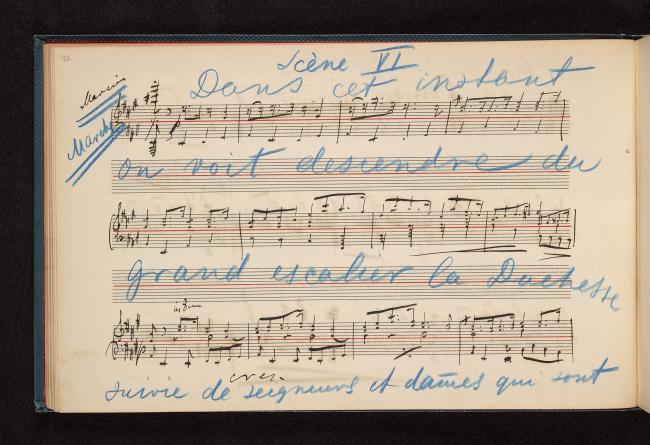 42
Scène VI
Dans cet instant
March
on voit descendre du
grand escalier la Duchesse
cresc.
suivie de seigneurs et dames qui sont